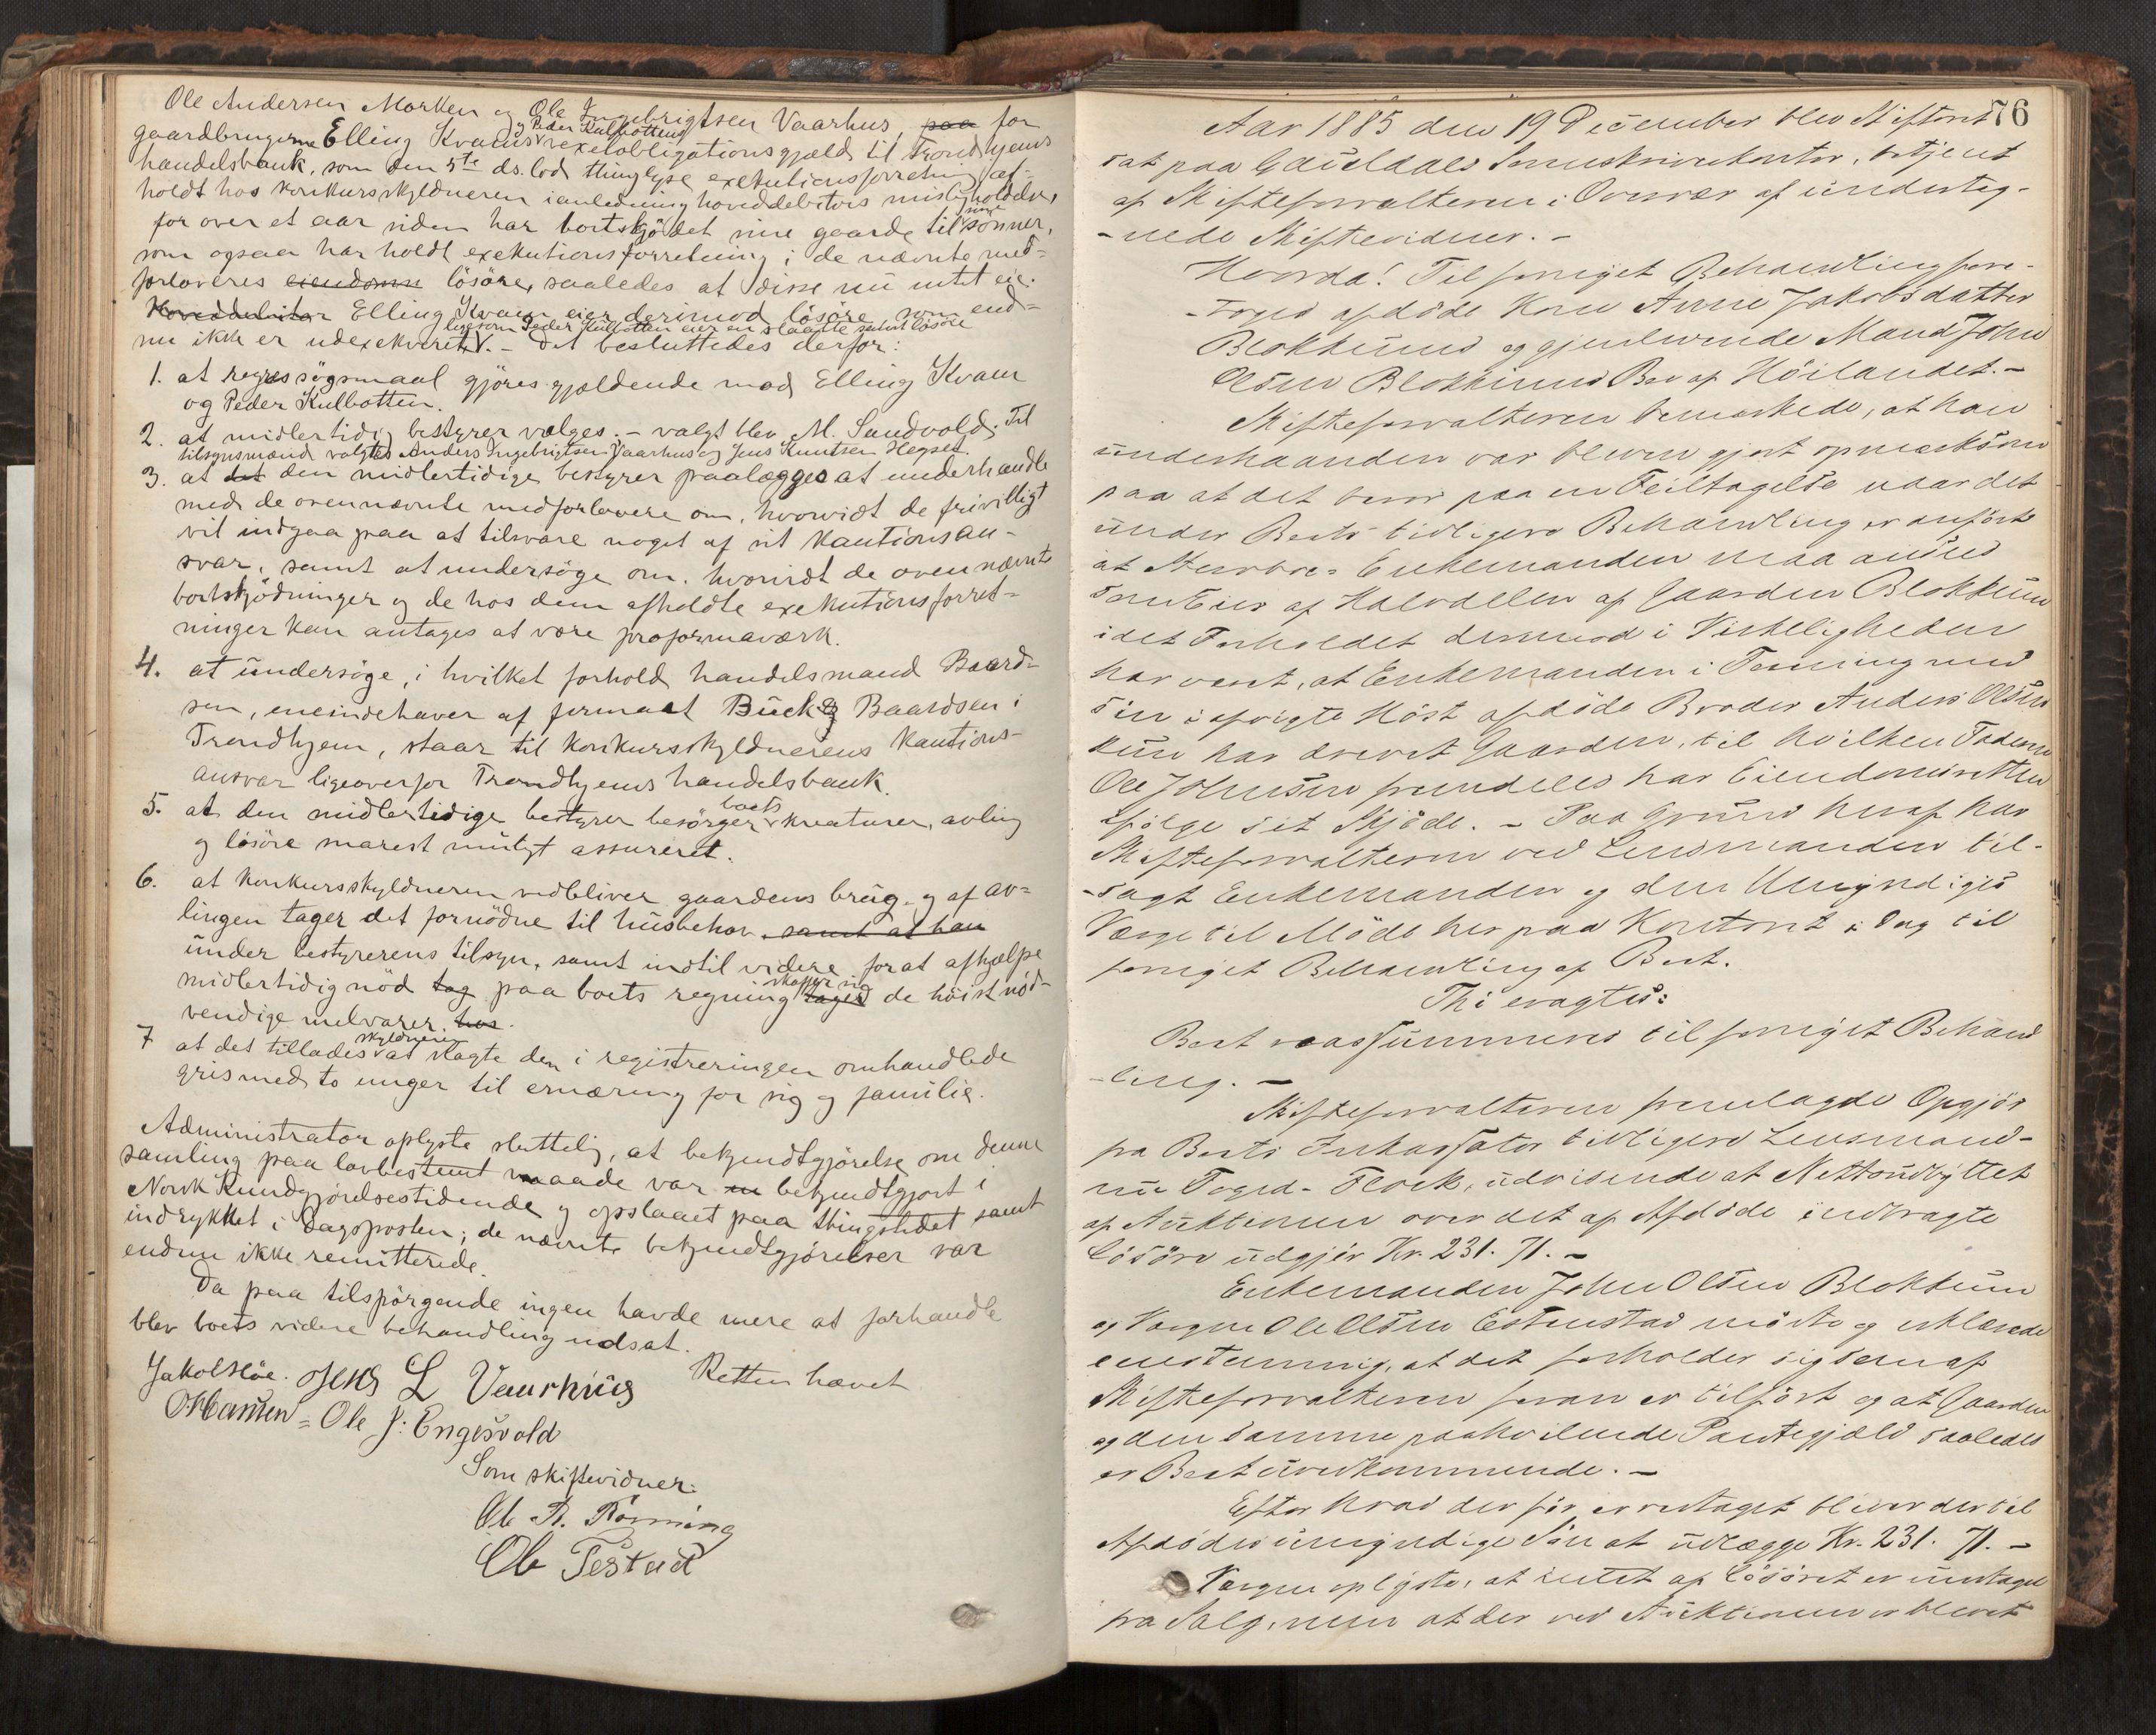 Ole Andersen Morken og Ole Ingebrigtsen Vaarhus, paa for
gaardbrugerne Elling Kvams og Peder Kulbottens vexelobligationsgjæld til Trondhjems
handelsbank, som den 5te ds. lod thinglyse exekutionsforretning af-
holdt hos konkursskyldneren i anledning hoveddebitors misligholdelse,
for over et aar siden har bortskjödet sine gaarde til sine sönner,
som ogsaa har holdt exekutionsforretning i de nævnte med-
forloveres eiendomme lösöre, saaledes at disse nu intet eie.
Hoveddebitor Elling Kvam eier derimod lösöre som end-
nu ikke er udexekveret, ligesom Peder Kulbotten eier en slaatte samt lösöre. - Det besluttedes derfor:
1. at regressögsmaal gjöres gjældende mod Elling Kvam
og Peder Kulbotten.
2. at midlertidig bestyrer vælges. - valgt blev M. Sandvold. Til
tilsynsmænd valgtes Anders Ingebrigtsen Vaarhus og Jens Knutsen Hegset.
3. at det den midlertidige bestyrer paalægges at underhandle
med de ovennævnte medforlovere om, hvorvidt de frivilligt
vil indgaa paa at tilsvare noget af sit kautionsan-
svar, samt at undersöge om, hvorvidt de ovennævnte
bortskjödninger og de hos dem afholdte exekutionsforret-
ninger kan antages at være proformaværk.
4. at undersöge, i hvilket forhold handelsmand Baard-
sen, eneindehaver af firmaet Buck & Baardsen i
Trondhjem, staar til konkursskyldnerens kautions-
ansvar ligeoverfor Trondhjems handelsbank.
5. at den midlertidige bestyrer besörger boets kreaturer, avling
og lösöre snarest muligt assureret.
6. at konkursskyldneren vedbliver gaardens brug og af av-
lingen tager det fornödne til husbehov, samt at han
under bestyrerens tilsyn, samt indtil videre for at afhjælpe
midlertidig nöd tag paa boets regning skaffer sig tages de höist nöd-
vendige melvarer. hos.
7 at det tillades skyldneren at slagte den i registreringen omhandlede
gris med to unger til ernæring for sig og familie.
Administrator oplyste sluttelig, at bekjendtgjörelse om denne
samling paa lovbestemt maade var in bekjendtgjort i
Norsk Kundgjörelsestidende og opslaaet paa thingstedet samt
indrykket i Dagsposten; de nævnte bekjendtgjörelser var
endnu ikke remitterede.
Da paa tilspörgende ingen havde mere at forhandle
blev boets videre behandling udsat.
Retten hævet
Jakob Höe. Jens L Vaarhus
O. Hansen = Ole J: Engesvold
Som skiftevidner:
Ole R. Rönning
Ole Testad
76
Aar 1885 den 19 December blev Skifteret
sat paa Gauldals Sorenskriverkontor, betjent
af Skifteforvalteren i Overvær af underteg-
-nede Skiftevidner. -
Hvorda! Til forniget Behandling fore-
-toges afdöde Kone Anne Jakobsdatter
Blokkums og gjenlevende Mand John
Olsen Blokkums Bo af Höilandet. -
Skifteforvalteren bemærkede, at han
underhaanden var bleven gjort opmærksom
paa at det beror paa en Feiltagelse naar det
under Boets tidligere Behandling er anfört
at Stervboe- Enkemanden maa ansees
som Eier af Halvdelen af Gaarden Blokkum
idet Forholdet derimod i Virkeligheden
har været, at Enkemanden i Forening med
sin i afvigte Höst afdöde Broder Anders Olsen
kun har drevet Gaarden, til hvilken Faderen
Ole Johnsen fremdeles har Eiendomsretten
ifölge sit Skjöde. - Paa Grund heraf har
Skifteforvalteren ved Lensmanden til-
-sagt Enkemanden og den Umyndiges
Værge til Möde her paa Kontoret i Dag til
forniget Behandling af Boet.
Thi eragtes:
Boet reassummeres til forniget Behand
-ling. -
Skifteforvalteren fremlagde Opgjör
fra Boets Inkassator tidligere Lensmand-
nu Foged- Flock, udvisende at Nettoudbyttet
af Auktionen over det af Afdöde indbragte
Lösöre udgjör Kr. 231. 71. -
Enkemanden John Olsen Blokkum
og Værgen Ole Olsen Estenstad mödte og erklærede
enstemmig, at det forholder sig som af
Skifteforvalteren foran er tilfört og at Gaarden
og den samme paahvilende Pantegjæld saaledes
er Boet uvedkommende. -
Efter hvad der för er vedtaget bliver der til
Afdödes umyndige Sön at udlægge Kr. 231. 71. -
Værgen oplyste, at intet af Lösöret er undtaget
fra Salg, men at der ved Auktionen er blevet